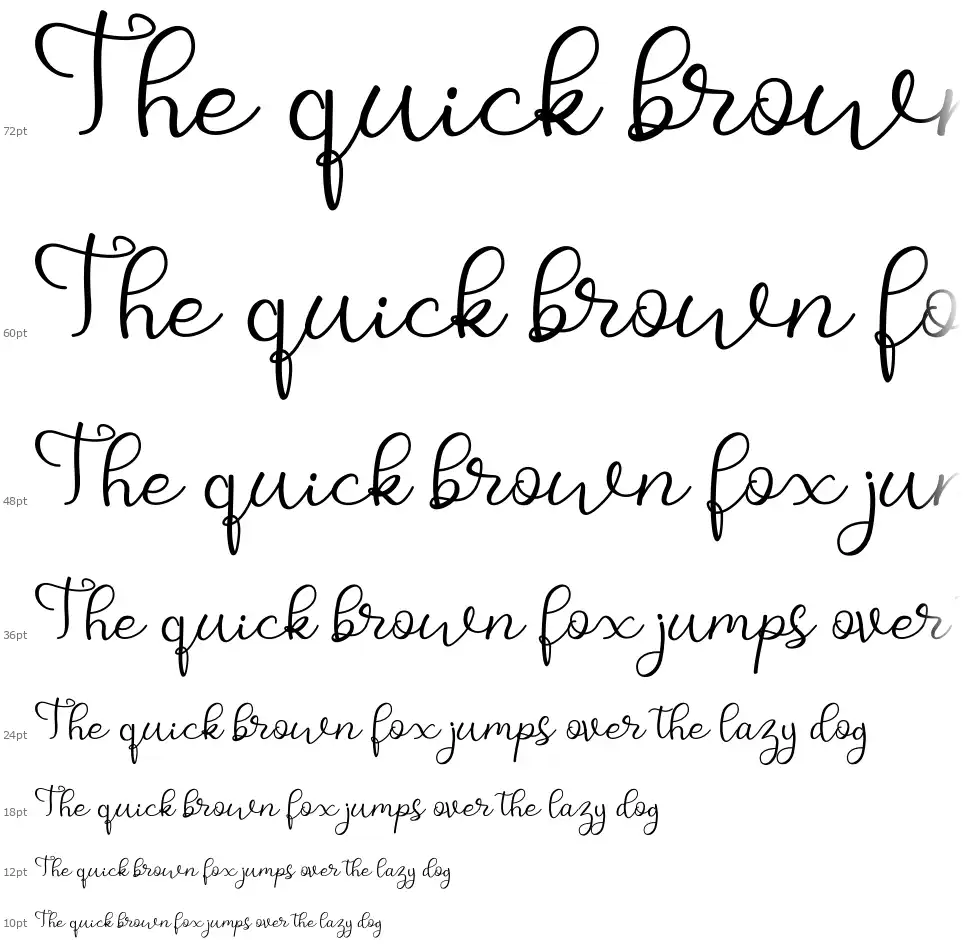 72pt The quick brown
60pt The quick brown fo
48pt The quick brown fox jur
36pt The quick brown fox jumps over
24pt The quick brown fox jumps over the lazy dog
18pt The quick brown fox jumps over the lazy dog
12pt The quick brown fox jumps over the lazy dog
10pt The quick brown fox jumps over the lazy dog